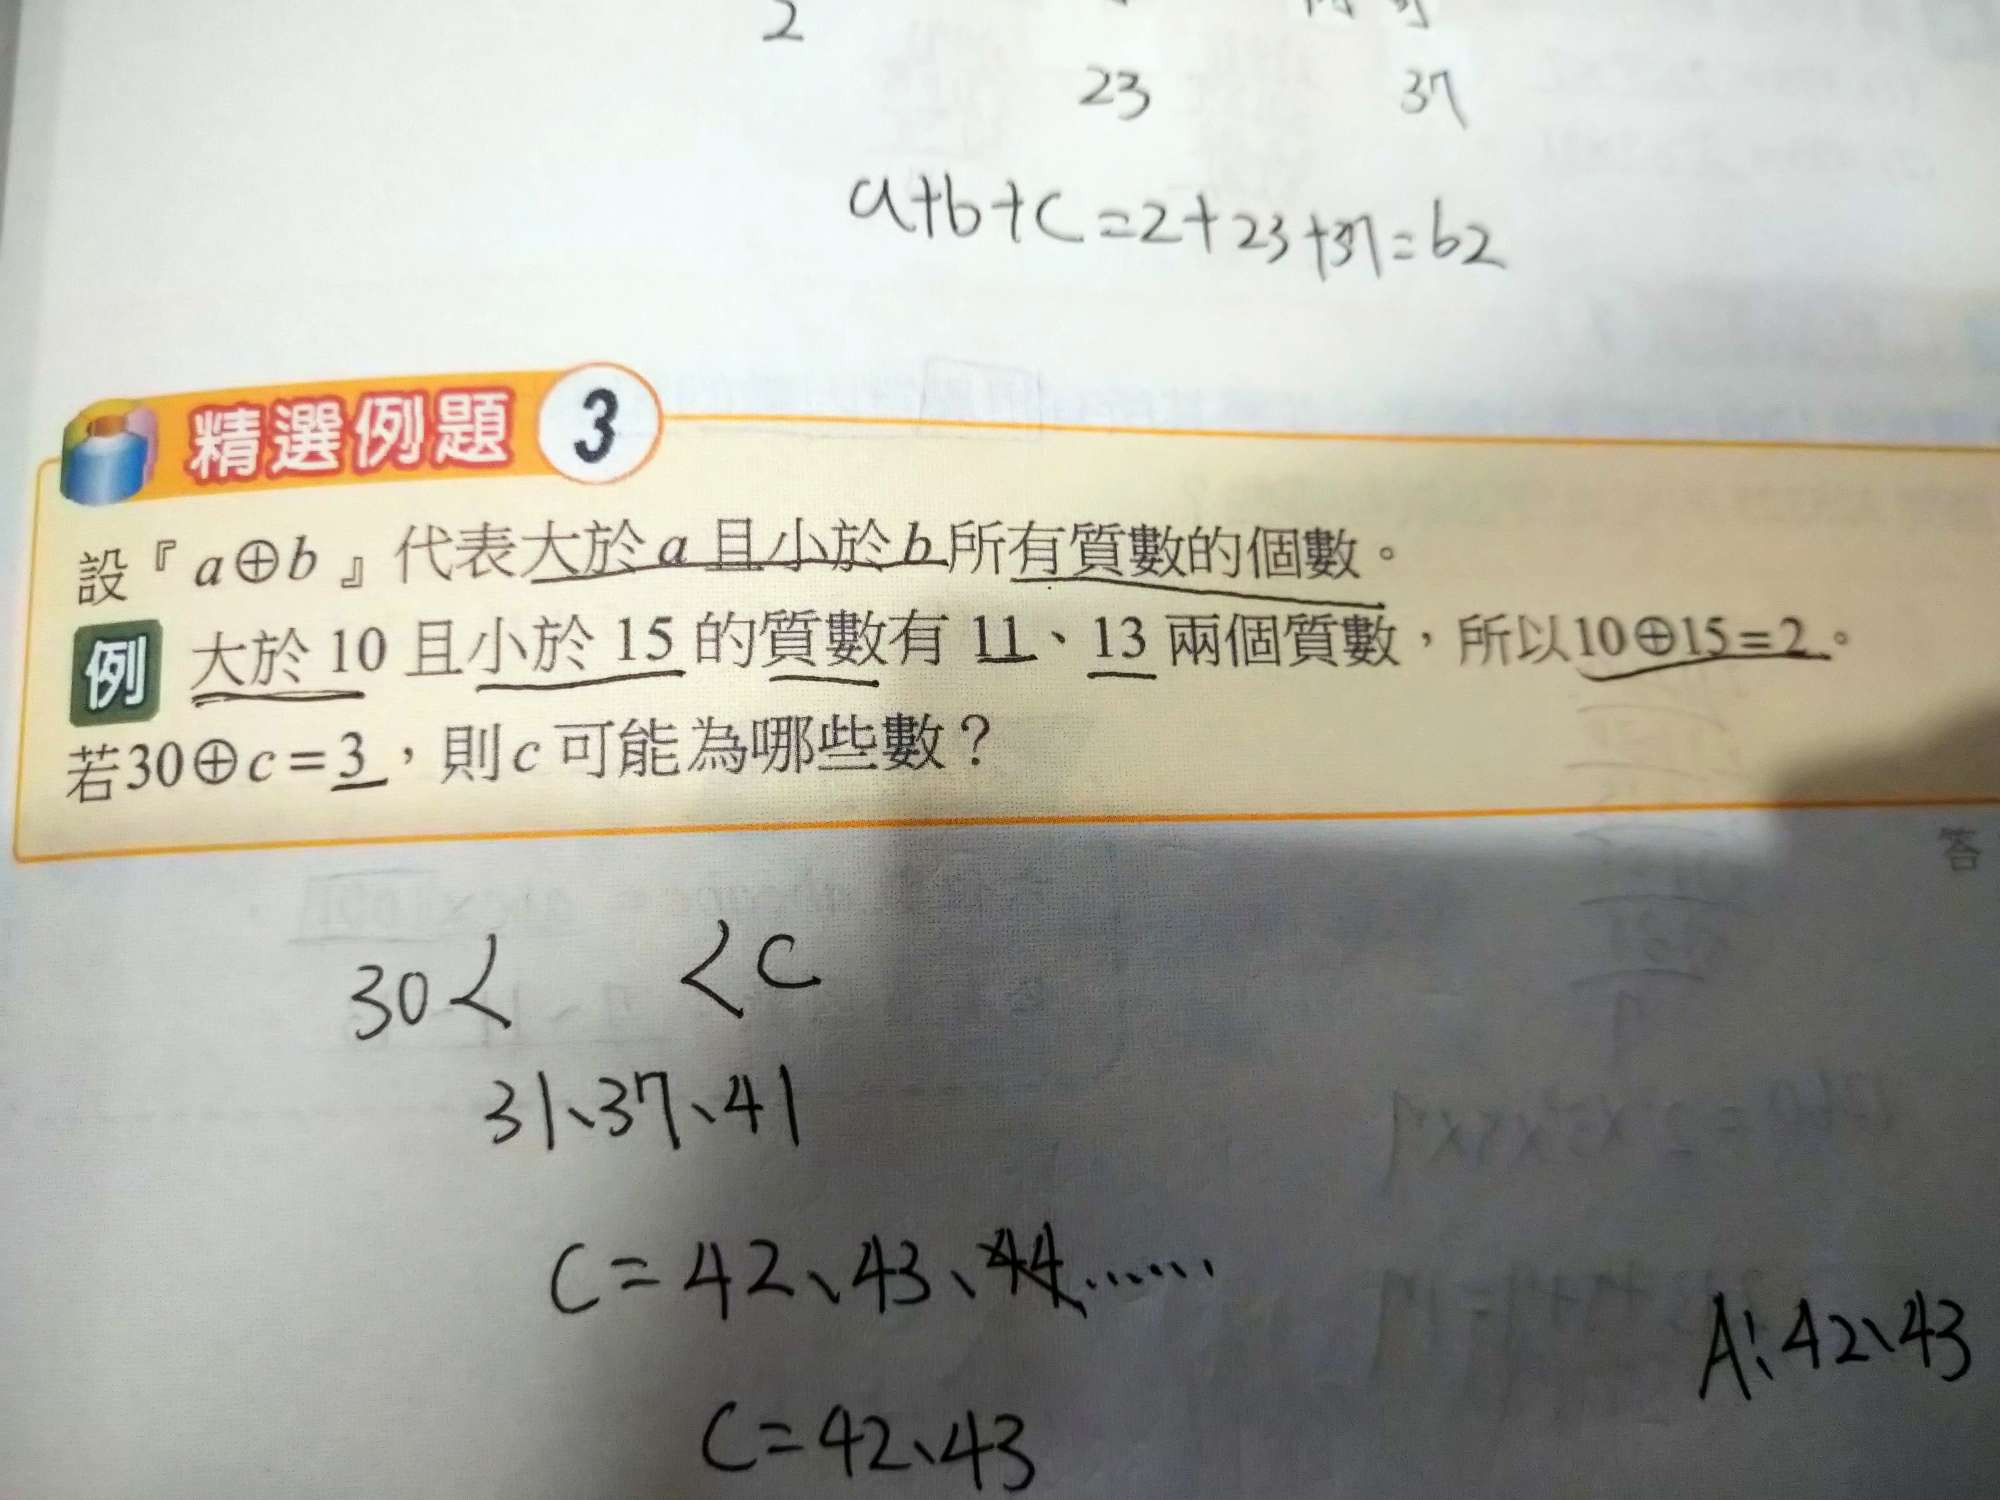 2
23 37
a+b+c=2+23+37=62
精選例題 3
設『a⊕b』代表大於a且小於b所有質數的個數。
例 大於10且小於15的質數有11、13兩個質數,所以10⊕15=2。
若30⊕c=3,則c可能為哪些數?
答
30< <C
31、37、41
C=42、43、44......
C=42、43
A:42、43